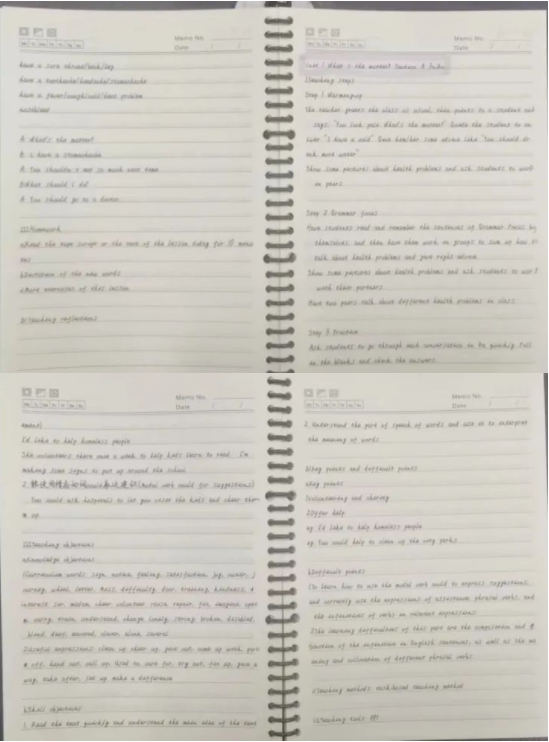 Memo No.
Date / /
Mo Tu We Th Fr Sa Su
have a sore throat/back/leg
have a toothache/headache/stomachache
have a fever/cough/cold/heart problem
nosebleed
A: What's the matter?
B: I have a stomachache
A: You shouldn't eat so much next time
B: What should I do?
A: You should go to a doctor.
III Homework
a) Read the tape script or the text of the lesson today for 10 minutes
b) Recitation of the new words
c) More exercises of this lesson
IV Teaching reflections
Memo No.
Date / /
Mo Tu We Th Fr Sa Su
Unit 1 What's the matter? Section A
Teaching steps
Step 1 Warming up
The teacher greets the class as usual, then points to a student and
says: "You look pale. What's the matter?" Guide the student to an
swer "I have a cold". Give him/her some advice like "You should dr
ink more water"
Show some pictures about health problems and ask students to work
in pairs.
Step 2 Grammar focus
Have students read and remember the sentences of Grammar Focus by
themselves and then have them work in groups to sum up how to
talk about health problems and give right advice.
Show some pictures about health problems and ask students to work
with their partners
Have two pairs talk about different health problems in class
Step 3 Practice
Ask students to go through each conversation to be quickly. Fill
in the blanks and check the answers.
Memo No.
Date / /
Mo Tu We Th Fr Sa Su
I'd like to help homeless people
She volunteers there once a week to help kids learn to read. I'm
making some signs to put up around the school
2. 能使用情态动词could表达建议(Modal verb could for suggestions)
You could ask hospitals to let you visit the kids and cheer them
up
III Teaching objectives
a) Knowledge objectives
sign, notice, feeling, satisfaction, joy, owner, j
ourney, wheel, letter, Miss, difficulty, door, training, kindness,
interest, sir, madam, cheer, volunteer, raise, repair, fix, imagine,
carry, train, understand, change, lonely, strong, broken, disabled,
blind, deaf, clever, several
2) Useful expressions: clean up, cheer up, give out, come up with, put
off, hand out, call up, used to, care for, try out, fix up, give a
way, take after, set up, make a difference
b) Skill objectives
1. Read the text quickly and understand the main idea of the text
Memo No.
Date / /
Mo Tu We Th Fr Sa Su
2. Understand the part of speech of words and use it to interpret
the meaning of words
Key points and difficult points
a) Key points
1) Volunteering and charity
2) Offer help
eg. I'd like to help homeless people
eg. You could help to clean up the city parks
b) Difficult points
1) To learn how to use the modal verb could to express suggestions,
and correctly use the expressions of assistance, phrasal verbs, and
the infinitives of verbs in relevant expressions.
2) The learning difficulties of this part are the composition and f
unction of the infinitive in English sentences, as well as the me
aning and collocation of different phrasal verbs.
Teaching methods: task-based teaching method
Teaching tools: PPT